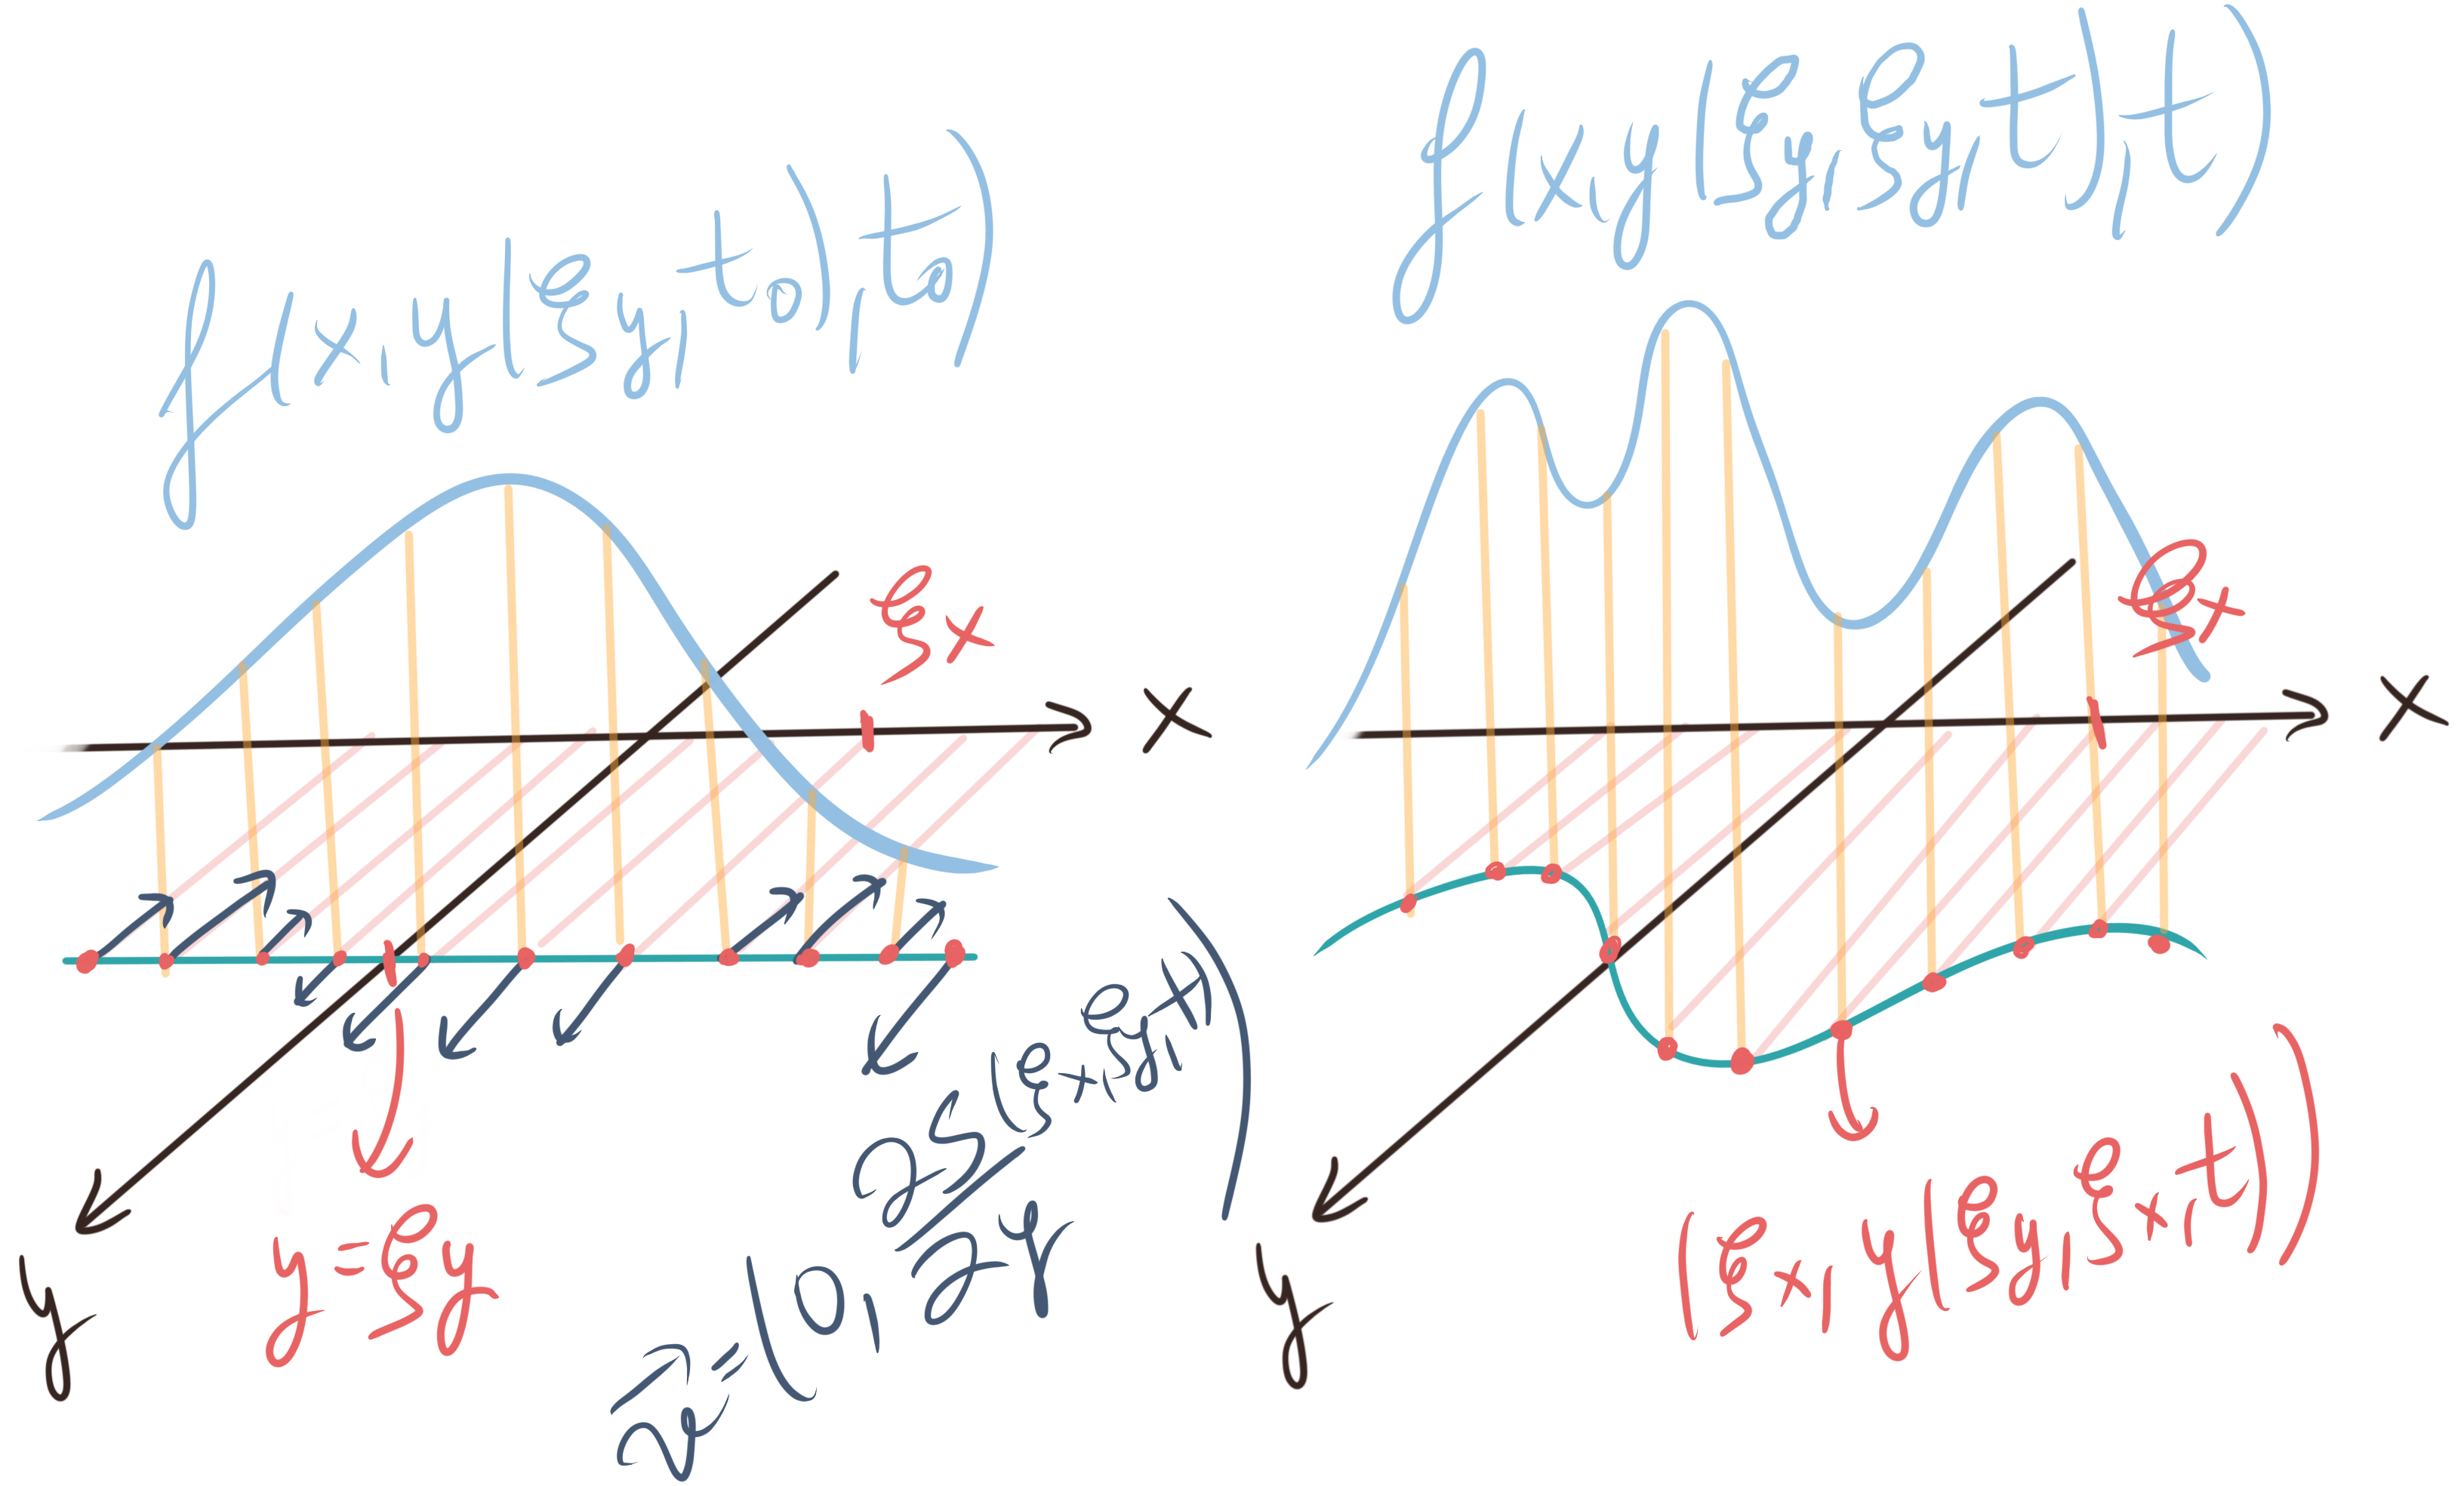 f(x,y(ξy,t₀),t₀)
ξx
x
y
y=ξy
v⃗=(0, ∂S(ξx,ξy,t)/∂y)
f(x,y(ξy,ξy,t),t)
ξx
x
y
(ξx,y(ξy,ξx,t))